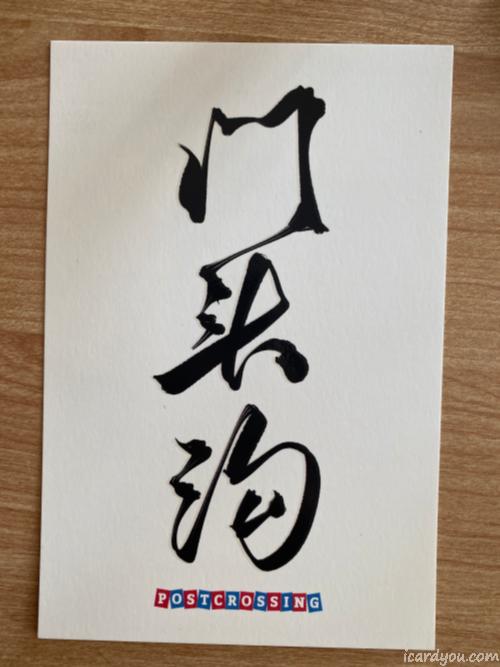 门头沟
POSTCROSSING
icardyou.com